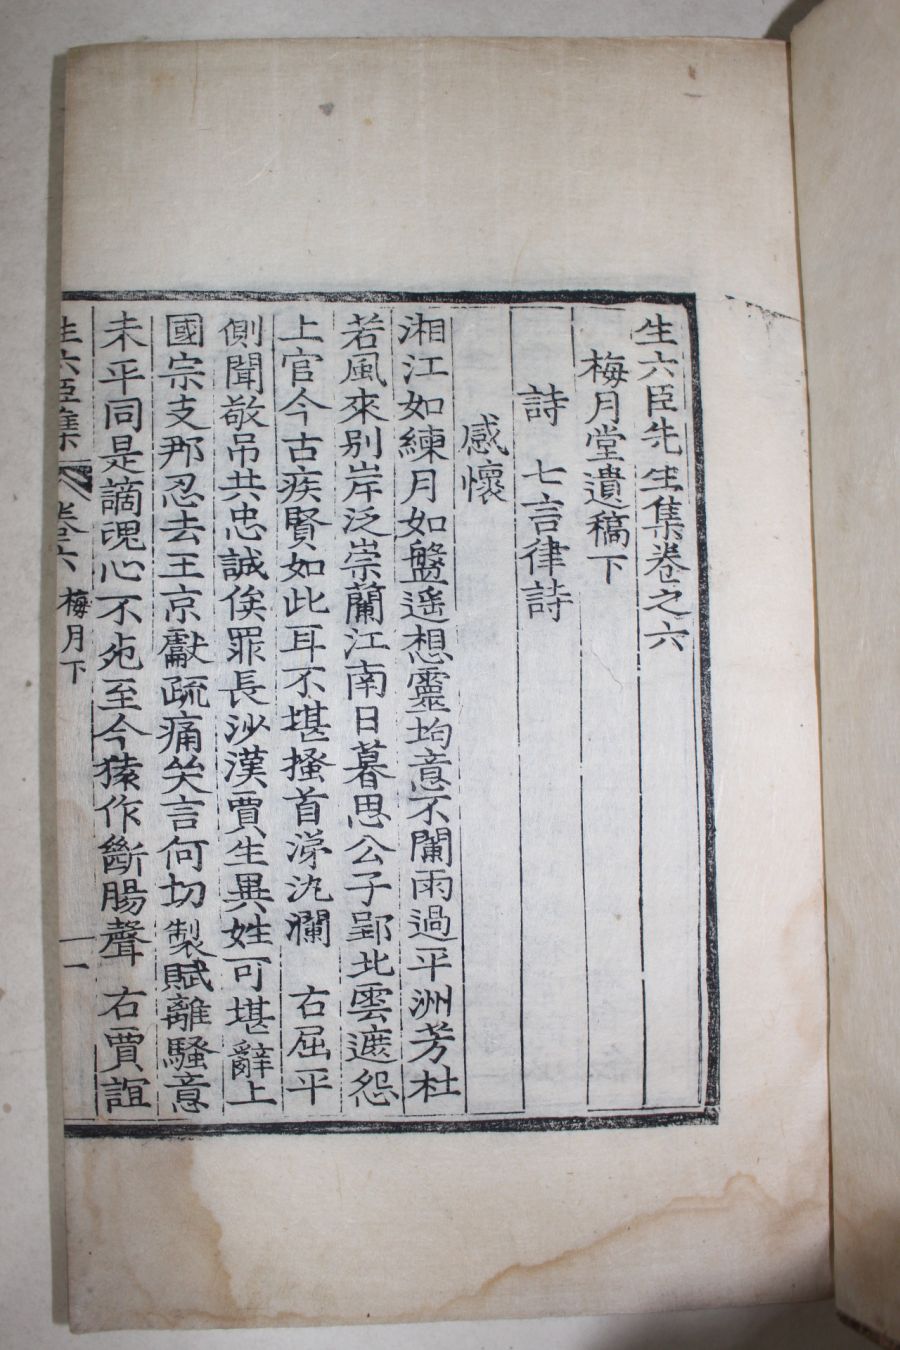 生六臣先生集卷之六
梅月堂遺稿下
詩 七言律詩
感懷
湘江如練月如盤遥想靈均意不闌雨過平洲芳杜
若風來别岸泛崇蘭江南日暮思公子郢北雲遮怨
上官今古疾賢如此耳不堪搔首涕汍瀾 右屈平
側聞敬吊共忠誠俟罪長沙漢賈生異姓可堪辭上
國宗支那忍去王京獻疏痛矣言何切製賦離騷意
未平同是謫魂心不死至今猿作斷腸聲 右賈誼
生六臣集 卷六 梅月下 一